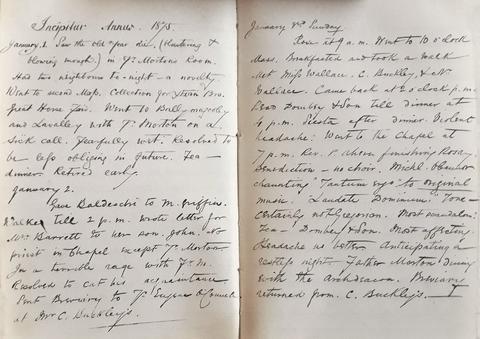 Incipitur Annus. 1875.
January 1. Saw the old year die. (Blustering &
blowing month.) in Fr. Mortons Room.
Had two neighbours to-night - a novelty.
Went to second Mass. Collection for Xtian Bro.
Great Horse Fair. Went to Ballymagooly
and Lavalley with Fr. Morton on a
Sick call. Fearfully wet. Resolved to
be less obliging in future. Tea -
dinner. Retired early.
January 2.
Gave Baldeschi to M. Griffin.
Walked till 2 p.m. Wrote letter for
Mrs Barrett to her son. John. No
priest in Chapel except Fr. Morton
In a terrible rage with Fr. M.
Resolved to cut his acquaintance
Sent Breviary to Fr. Eugene O'Connell
at Mr C. Buckley's.
January 3rd Sunday
Rose at 9 a.m. Went to 10 o'clock
Mass. Breakfasted and took a walk
Met Miss Wallace. C. Buckley, & Mr
Wallace. Came back at 2 o'clock p.m.
Read Dombey & Son till dinner at
4 p.m. Siesta after dinner. Violent
headache: Went to the Chapel at
7 p.m. Rev. finishing Rosary
Benediction - no choir. Michl.
chaunting "Tantum ergo" to original
music. "Laudate Dominum" Tone -
Certainly not Gregorian. Most scandalous.
Tea - Dombey & Son. Most affecting.
Headache no better. Anticipating a
restless night. Father Morton dining
with the Archdeacon. Breviary
returned from C. Buckley's.